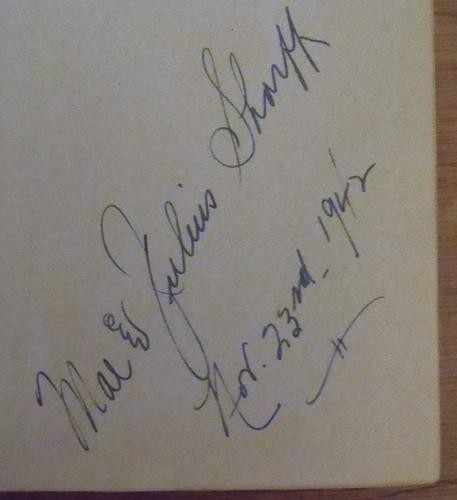 Mae & Julius Sharff
Nov. 23rd_1942